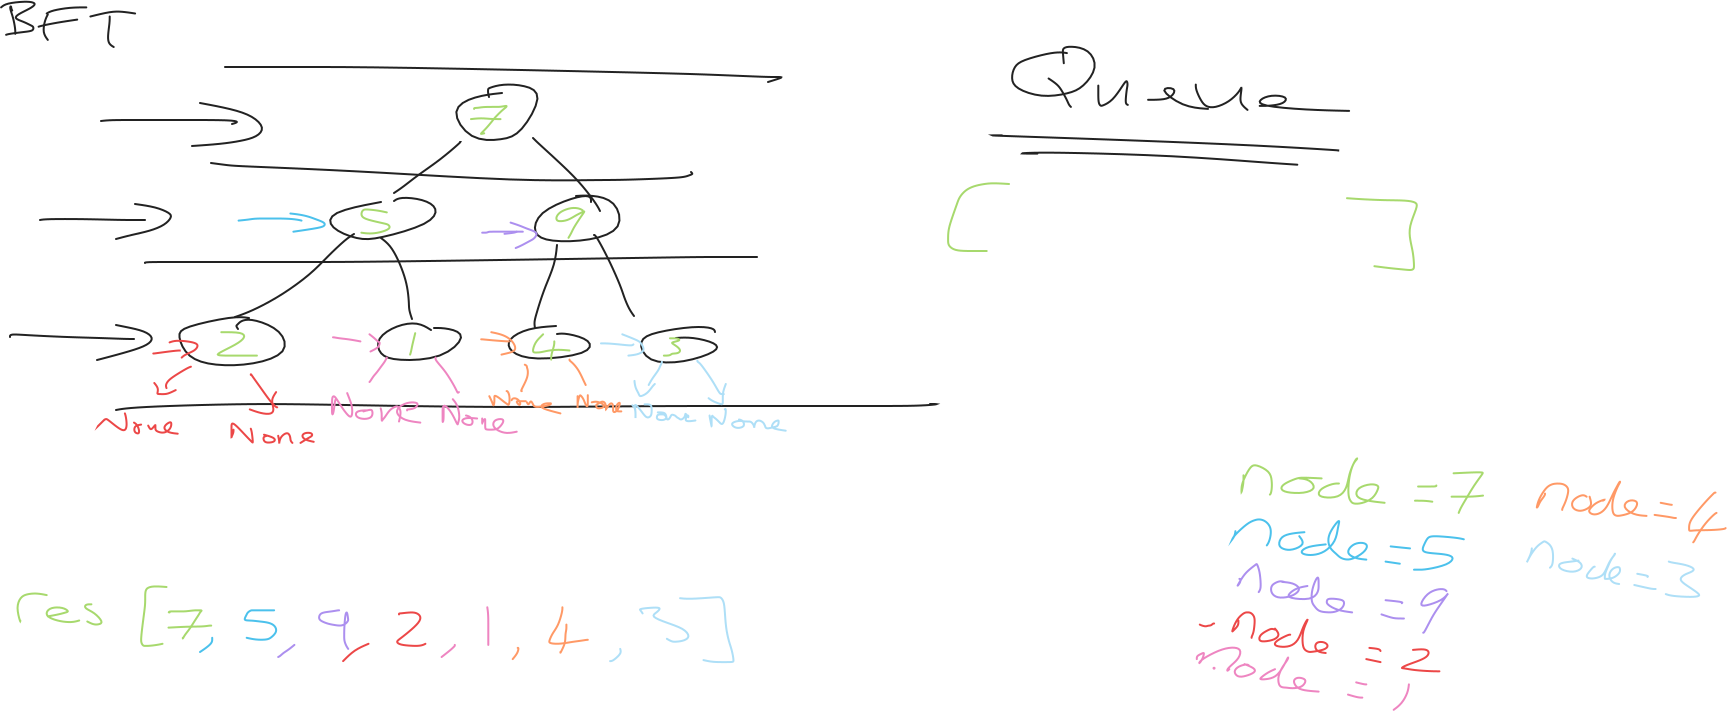 BFT
Queue
7
[ ]
5 9
2 1 4 3
None None None None None None None None
node = 7 node = 4
node = 5 node = 3
node = 9
- node = 2
node = 1
res [7, 5, 9, 2, 1, 4, 3]